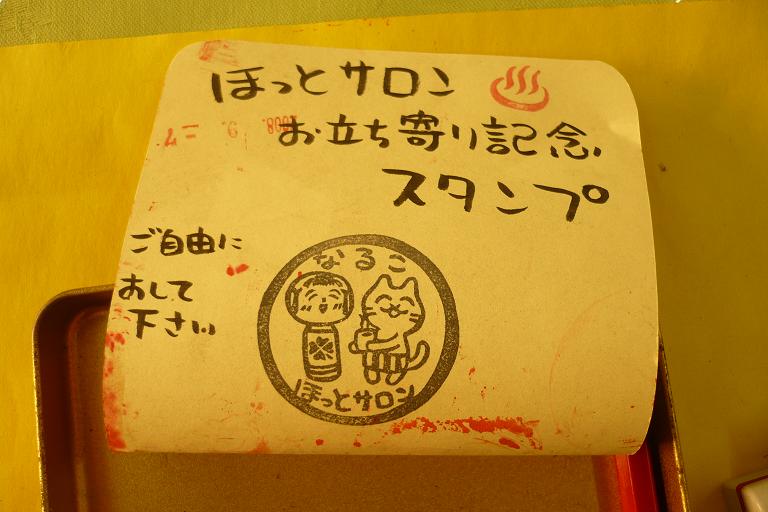 ほっとサロン
お立ち寄り記念
スタンプ
ご自由に
おして
下さい
なるこ
ほっとサロン